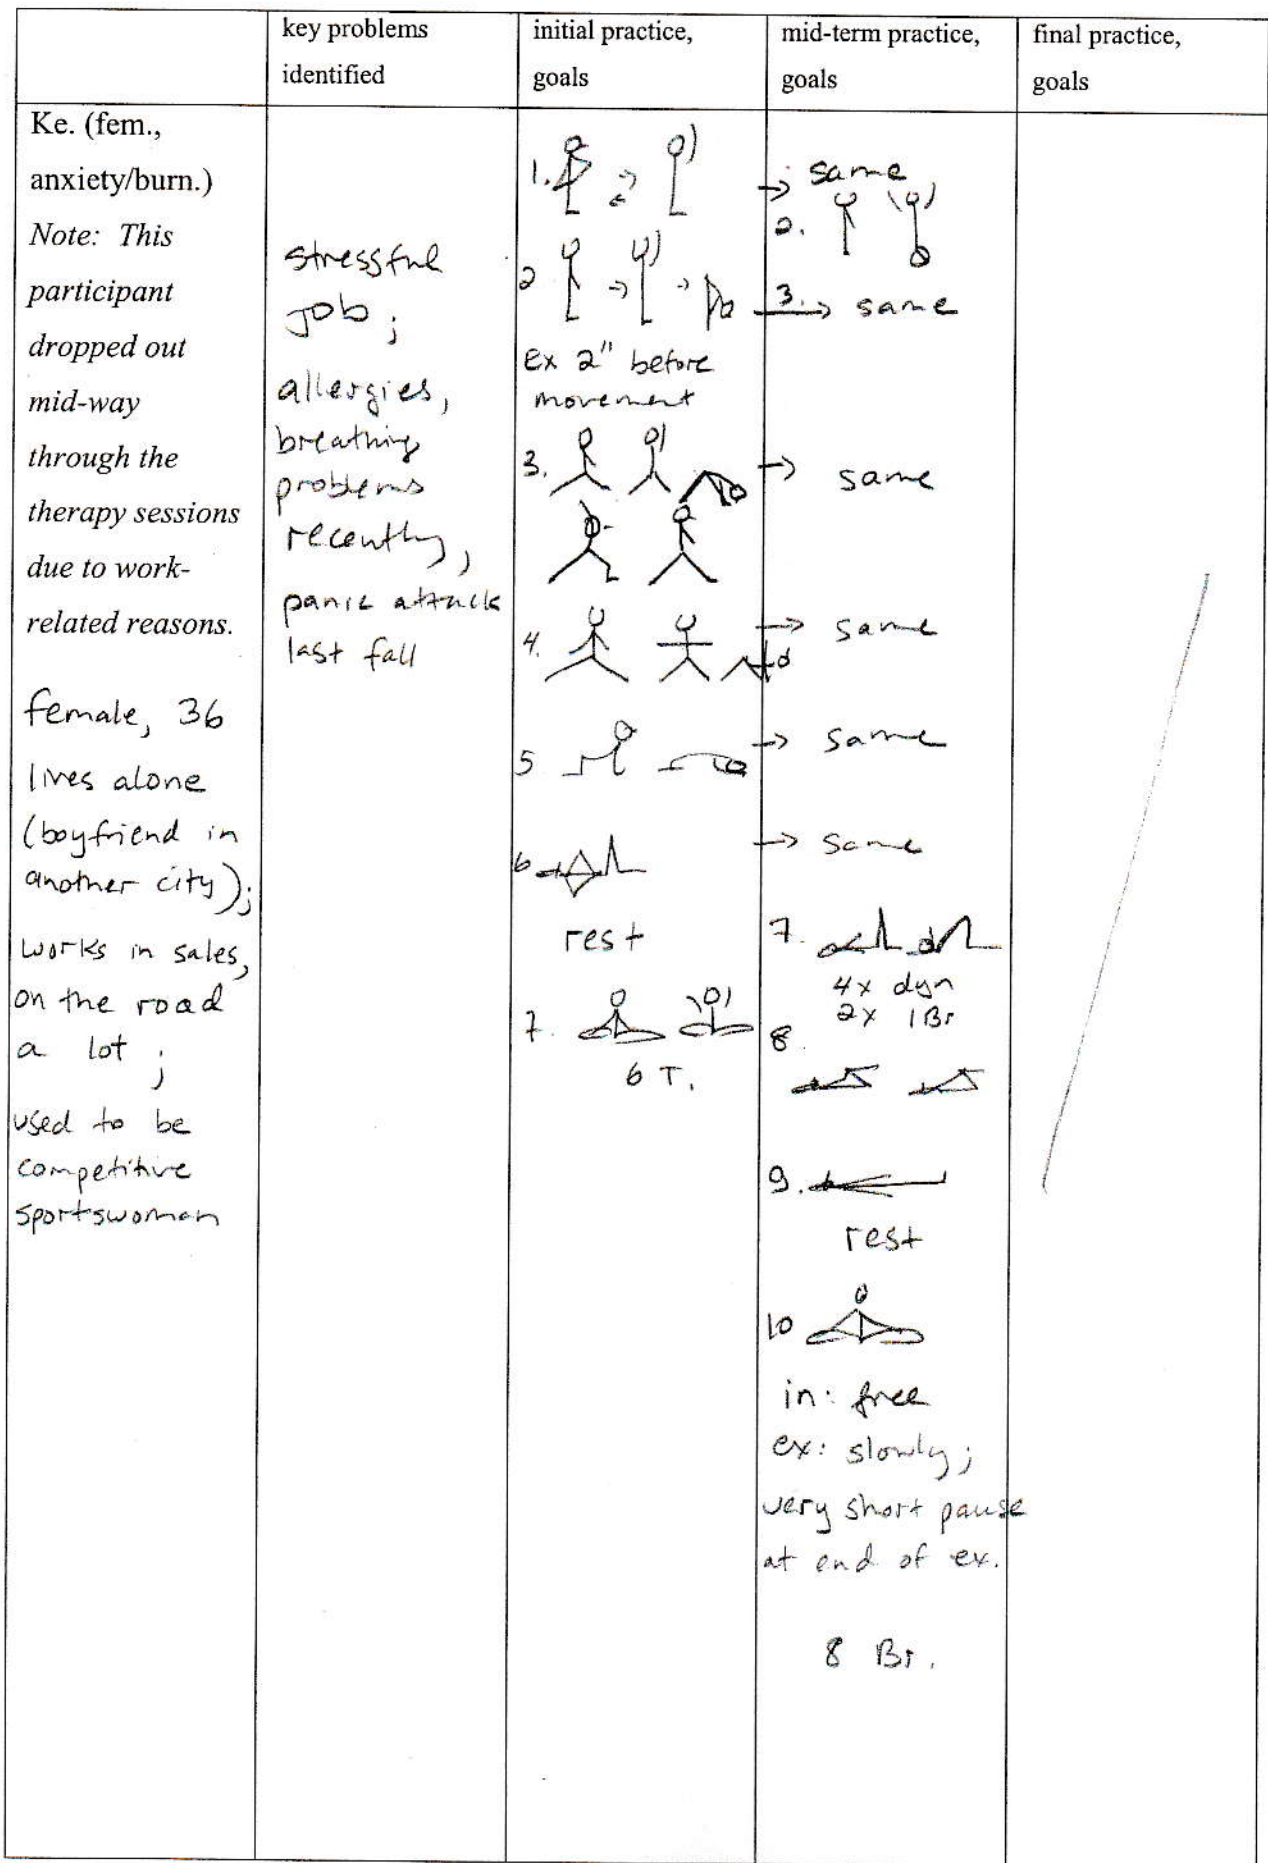 key problems
identified
initial practice,
goals
mid-term practice,
goals
final practice,
goals
Ke. (fem.,
anxiety/burn.)
Note: This
participant
dropped out
mid-way
through the
therapy sessions
due to work-
related reasons.
female, 36
lives alone
(boyfriend in
another city);
works in sales,
on the road
a lot ;
used to be
competitive
sportswoman
stressful
job ;
allergies,
breathing
problems
recently,
panic attack
last fall
1.
2
ex 2" before
movement
3.
4.
5
6
rest
7.
6 T.
→ same
2.
3. → same
→ same
→ same
→ same
→ same
7.
4x dyn
2x 1Br
8
9.
rest
10
in: free
ex: slowly;
very short pause
at end of ex.
8 Br.